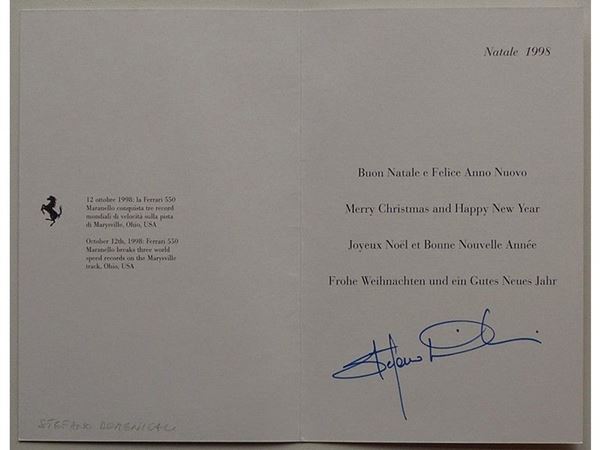 12 ottobre 1998: la Ferrari 550
Maranello conquista tre record
mondiali di velocità sulla pista
di Marysville, Ohio, USA
October 12th, 1998: Ferrari 550
Maranello breaks three world
speed records on the Marysville
track, Ohio, USA
STEFANO DOMENICALI
Natale 1998
Buon Natale e Felice Anno Nuovo
Merry Christmas and Happy New Year
Joyeux Noël et Bonne Nouvelle Année
Frohe Weihnachten und ein Gutes Neues Jahr